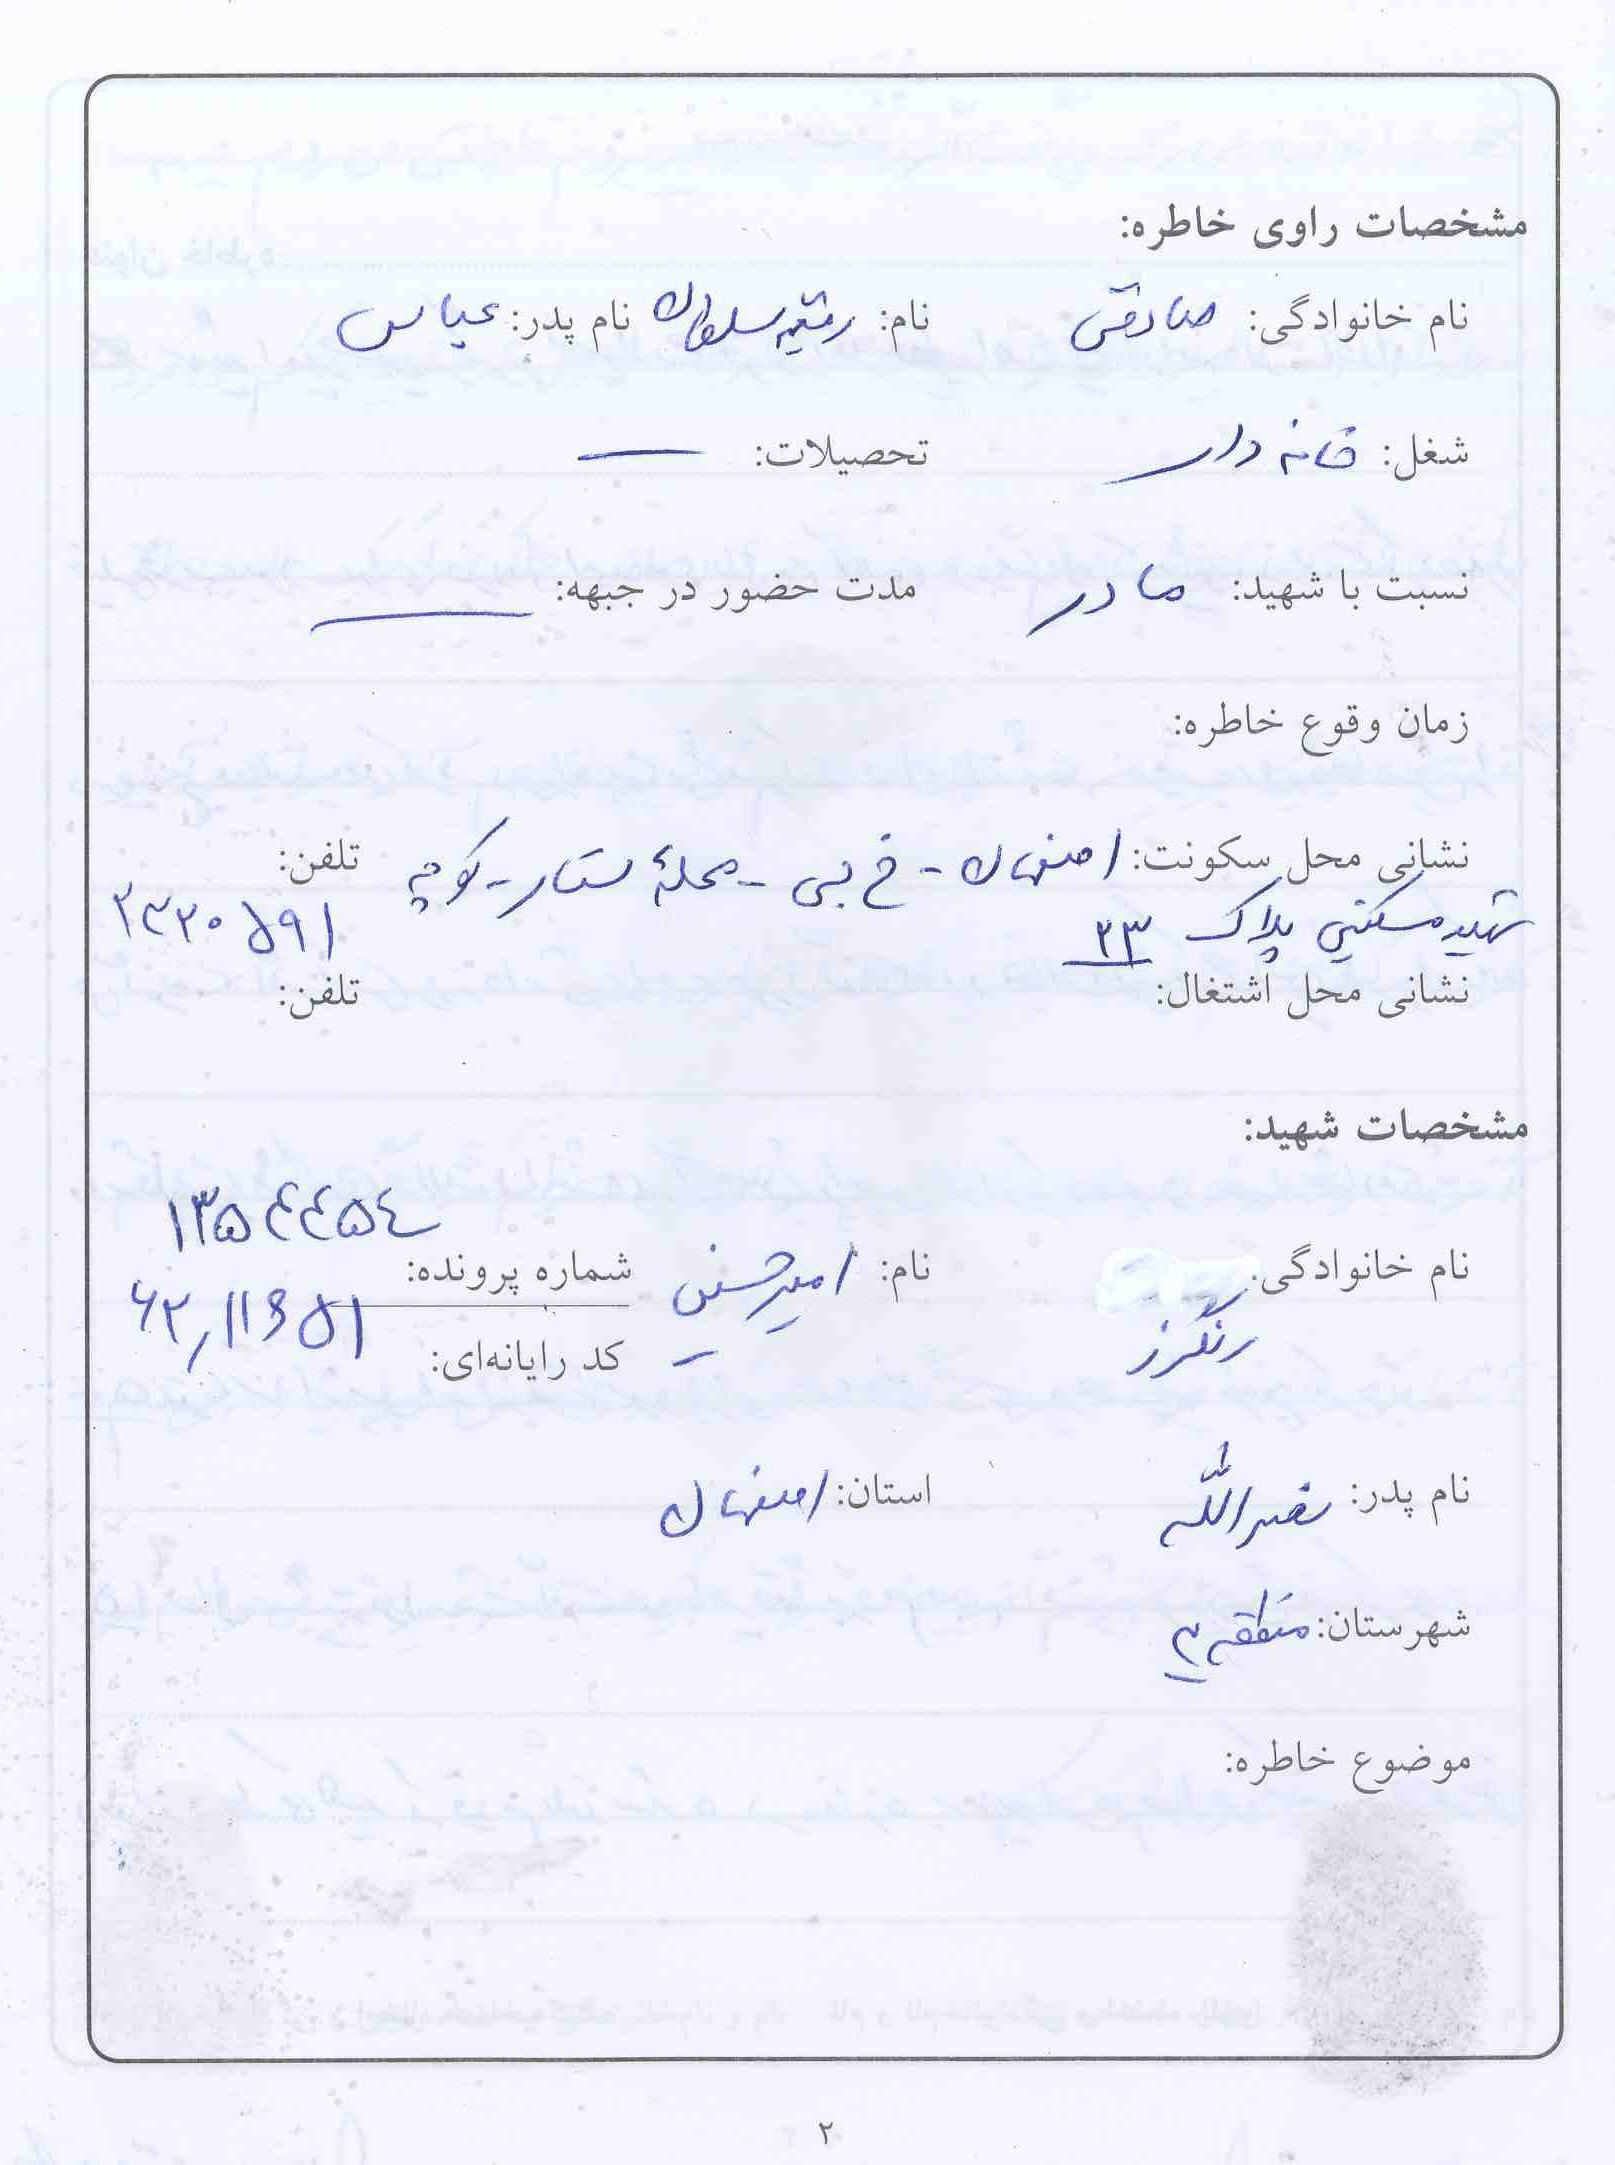 مشخصات راوی خاطره:
نام خانوادگی: صادقی نام: رقیه سلطان نام پدر: عباس
شغل: خانه دار تحصیلات: —
نسبت با شهید: مادر مدت حضور در جبهه: —
زمان وقوع خاطره:
نشانی محل سکونت: اصفهان - خ بی - محلهٔ ستار - کوچه تلفن:
شهید مسکنی پلاک ۳۳
نشانی محل اشتغال: تلفن:
مشخصات شهید:
نام خانوادگی: رنگرز نام: امیرحسین شماره پرونده:
کد رایانه‌ای:
نام پدر: نصرالله استان: اصفهان
شهرستان: منطقه ۳
موضوع خاطره:
۲